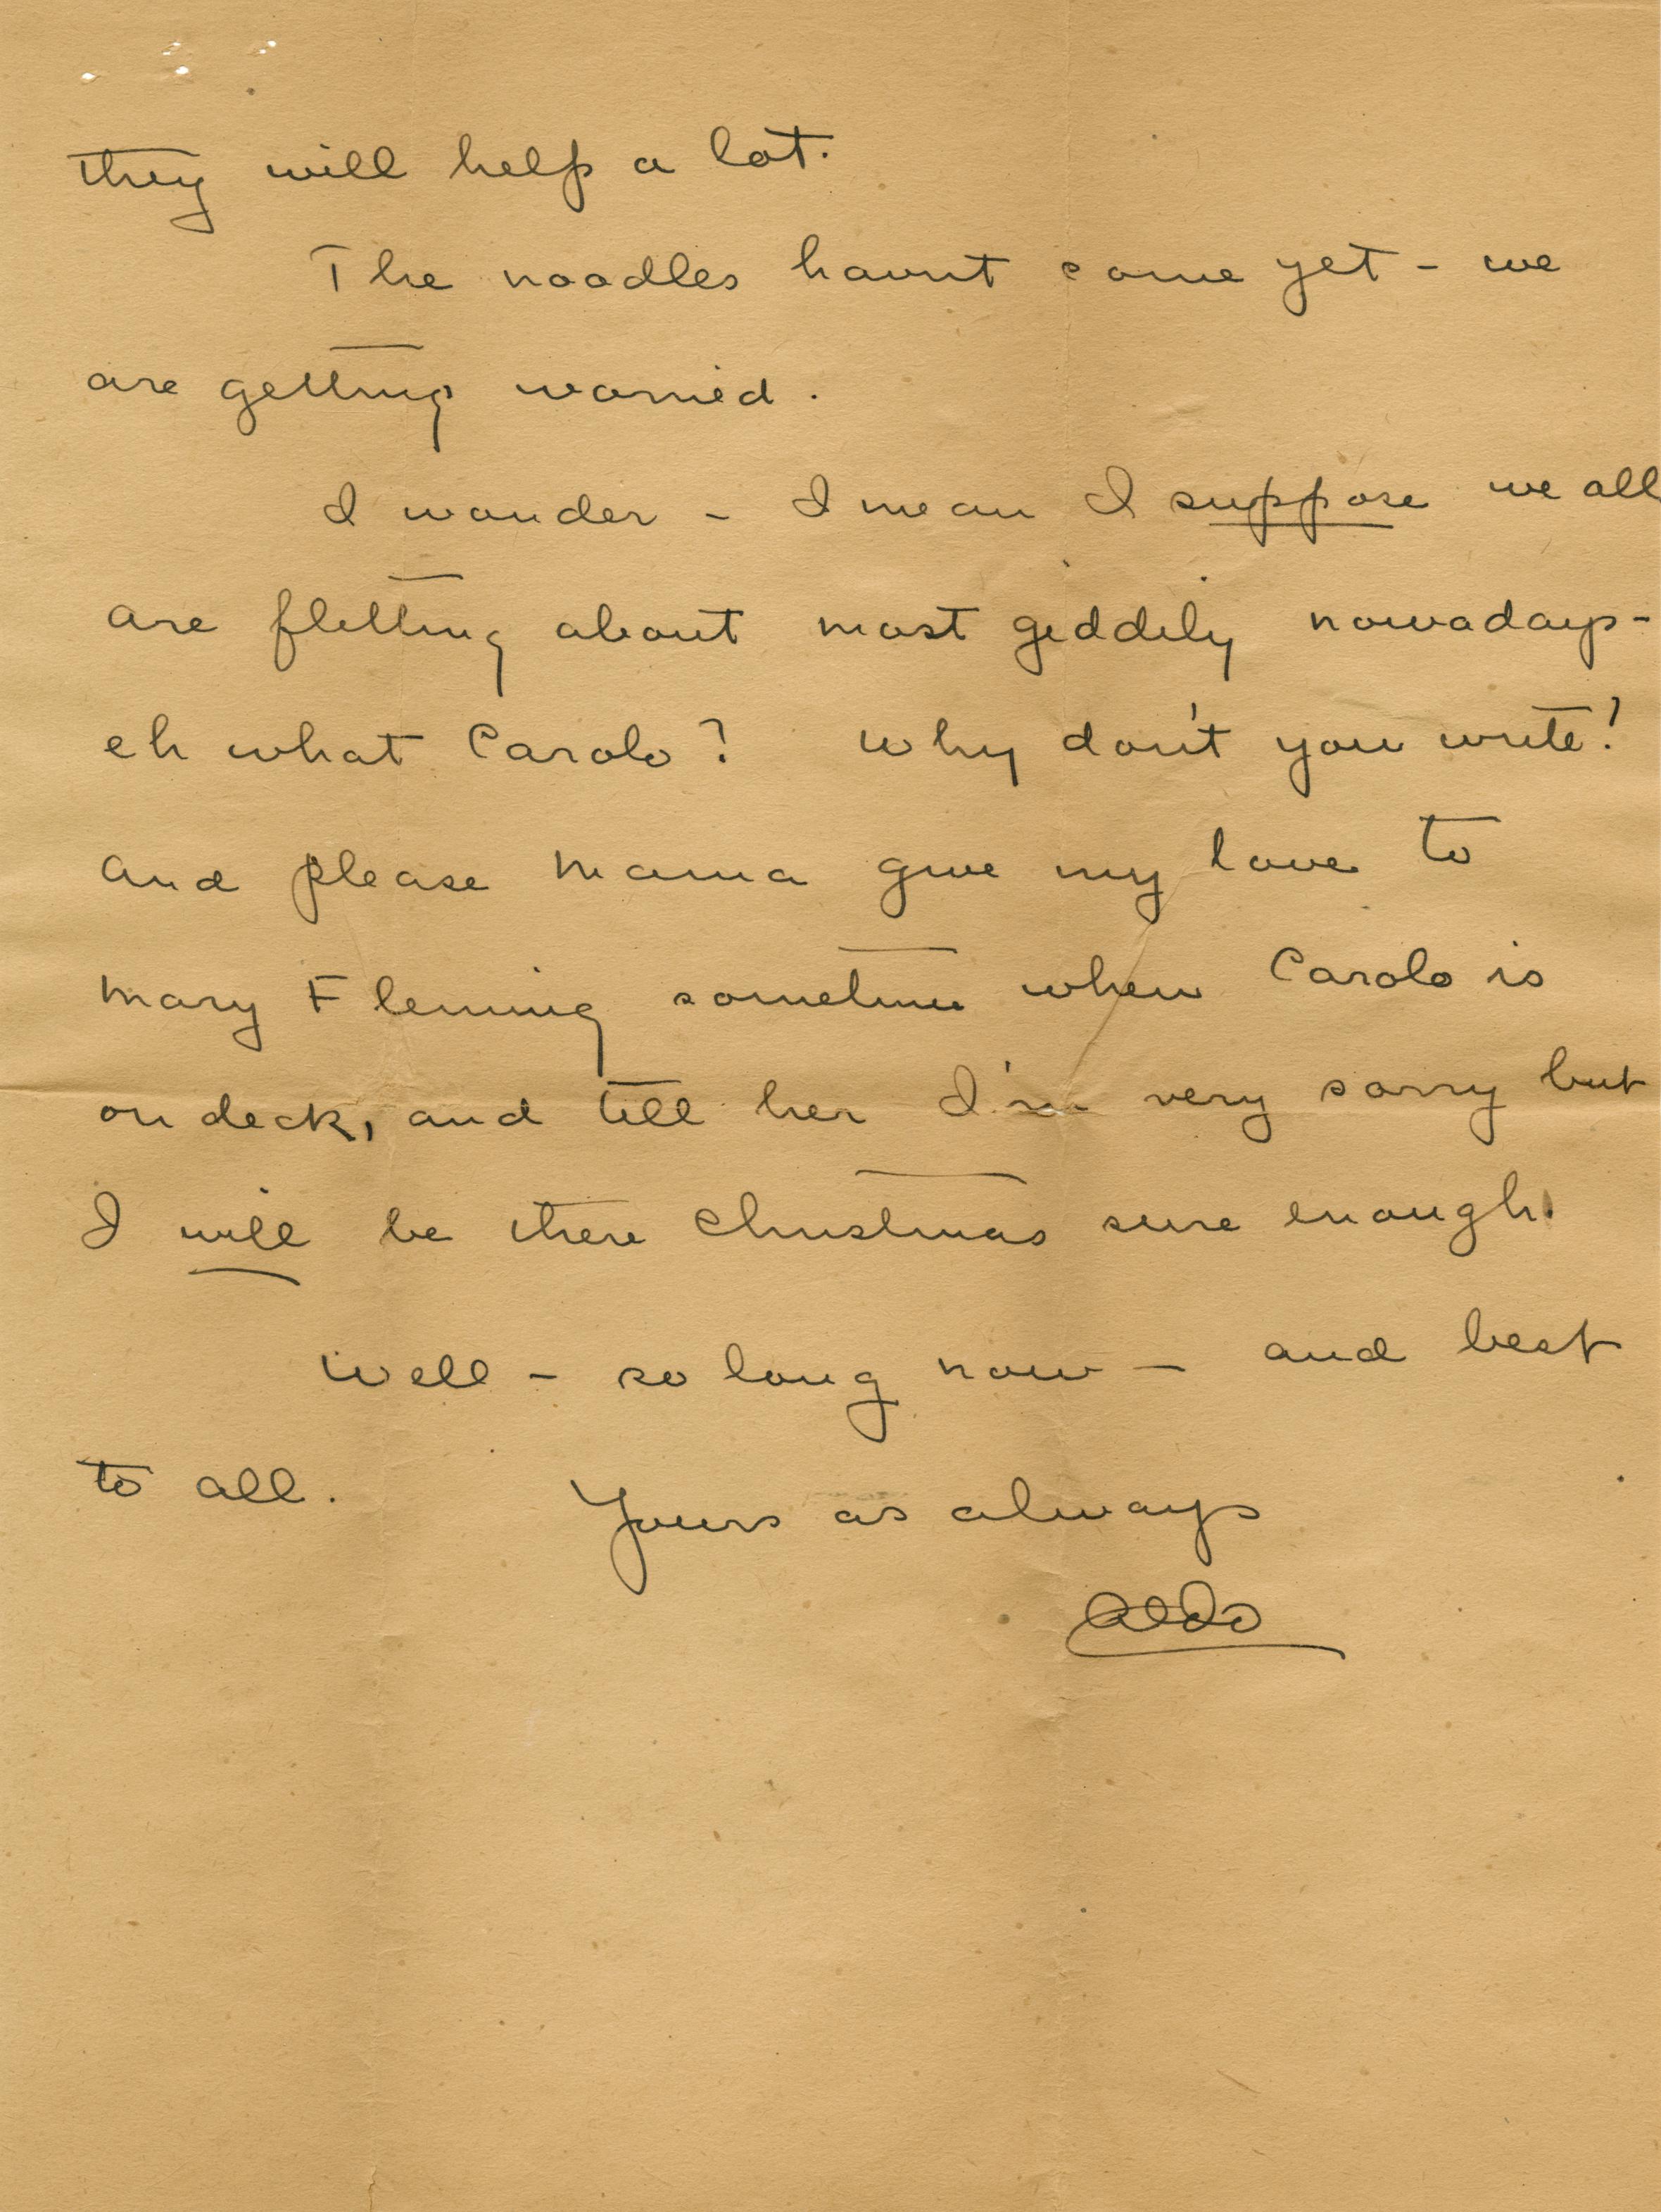 they will help a lot.
The noodles havnt come yet - we
are getting worried.
I wonder - I mean I suppose we all
are flitting about most giddily nowadays-
eh what Carolo? Why don't you write!
And please Mama give my love to
Mary Fleming sometime when Carolo is
on deck, and tell her I'm very sorry but
I will be there Christmas sure enough.
Well - so long now - and best
to all.
Yours as always
Aldo